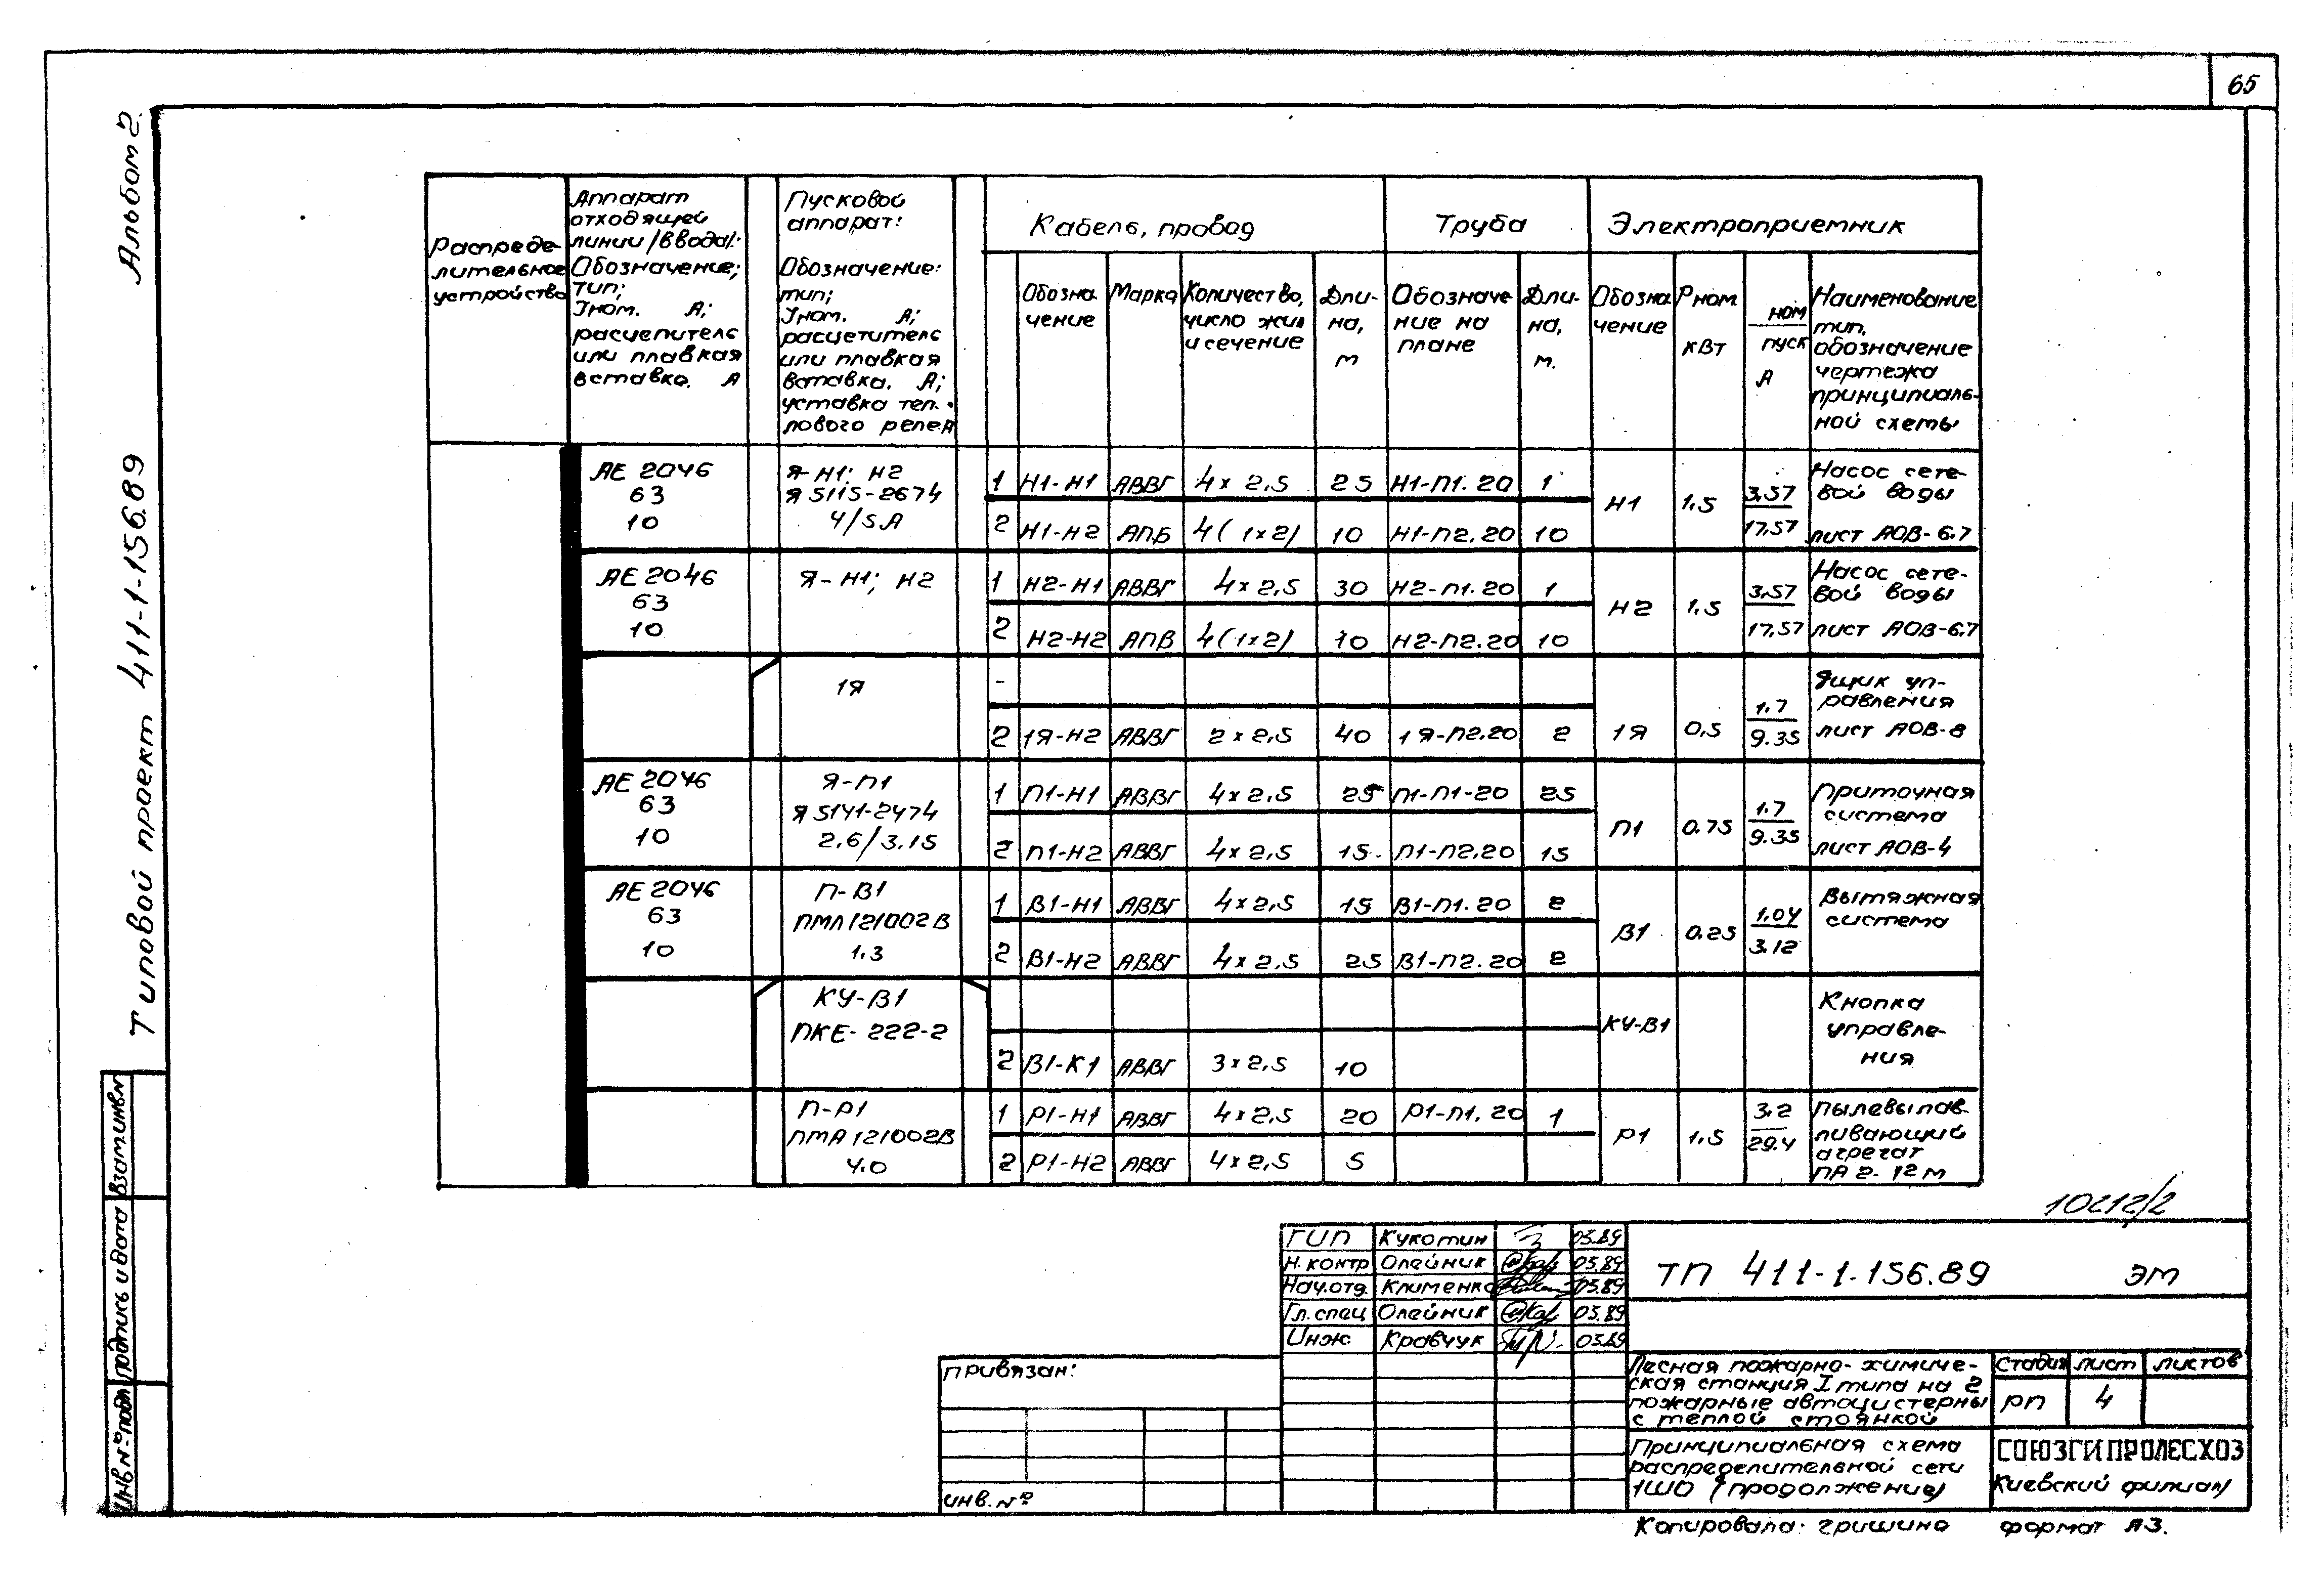 65
Альбом 2.
Типовой проект 411-1-156.89
Распреде-
лительное
устройство
Аппарат
отходящей
линии /ввода/:
Обозначение;
тип;
Iном. А;
расцепитель
или плавкая
вставка. А
Пусковой
аппарат:
Обозначение:
тип;
Iном. А;
расцетитель
или плавкая
вставка. А;
уставка теп-
лового реле А
Кабель, провод
Труба
Электроприемник
Обозна
чение
Марка
Количество,
число жил
и сечение
Дли-
на,
м
Обозначе
ние на
плане
Дли-
на,
м.
Обозна
чение
Рном
кВт
ном
пуск
А
Наименование
тип.
обозначение
чертежа
принципиаль-
ной схемы
АЕ 2046
63
10
Я-Н1; Н2
Я5115-2674
4/5А
1 Н1-Н1 АВВГ 4×2,5 25 Н1-П1.20 1
2 Н1-Н2 АПБ 4(1×2) 10 Н1-П2.20 10
Н1 1,5
3,57
17,57
Насос сете-
вой воды
лист АОВ-6.7
АЕ 2046
63
10
Я-Н1; Н2
1 Н2-Н1 АВВГ 4×2,5 30 Н2-П1.20 1
2 Н2-Н2 АПВ 4(1×2) 10 Н2-П2.20 10
Н2 1,5
3,57
17,57
Насос сете-
вой воды
лист АОВ-6.7
1Я
-
2 1Я-Н2 АВВГ 2×2,5 40 1Я-П2.20 2
1Я 0,5
1.7
9.35
Ящик уп-
равления
лист АОВ-8
АЕ 2046
63
10
Я-П1
Я5141-2474
2.6/3.15
1 П1-Н1 АВВГ 4×2,5 25 П1-П1-20 25
2 П1-Н2 АВВГ 4×2,5 15. П1-П2.20 15
П1 0.75
1.7
9.35
Приточная
система
лист АОВ-4
АЕ 2046
63
10
П-В1
ПМЛ121002В
1.3
1 В1-Н1 АВВГ 4×2,5 15 В1-П1.20 2
2 В1-Н2 АВВГ 4×2,5 25 В1-П2.20 2
В1 0.25
1.04
3.12
Вытяжная
система
КУ-В1
ПКЕ-222-2
2 В1-К1 АВВГ 3×2,5 10
КУ-В1
Кнопка
управле-
ния
П-Р1
ПМА121002В
4.0
1 Р1-Н1 АВВГ 4×2,5 20 Р1-П1.20 1
2 Р1-Н2 АВВГ 4×2,5 5
Р1 1,5
3.2
29.4
Пылевылав-
ливающий
агрегат
ПА 2-12м
10212/2
ГИП Кукотин 03.89
Н.контр Олейник 03.89
Нач.отд. Клименко 03.89
Гл.спец Олейник 03.89
Инж Кравчук 03.89
ТП 411-1-156.89 ЭМ
Лесная пожарно-химиче-
ская станция I типа на 2
пожарные автоцистерны
с теплой стоянкой
Стадия лист листов
РП 4
Принципиальная схема
распределительной сети
1ШО (продолжение)
СОЮЗГИПРОЛЕСХОЗ
Киевский филиал
Привязан:
инв.№
Взам.инв.№
Подпись и дата
Инв.№ подл
Копировала: Гришина формат А3.